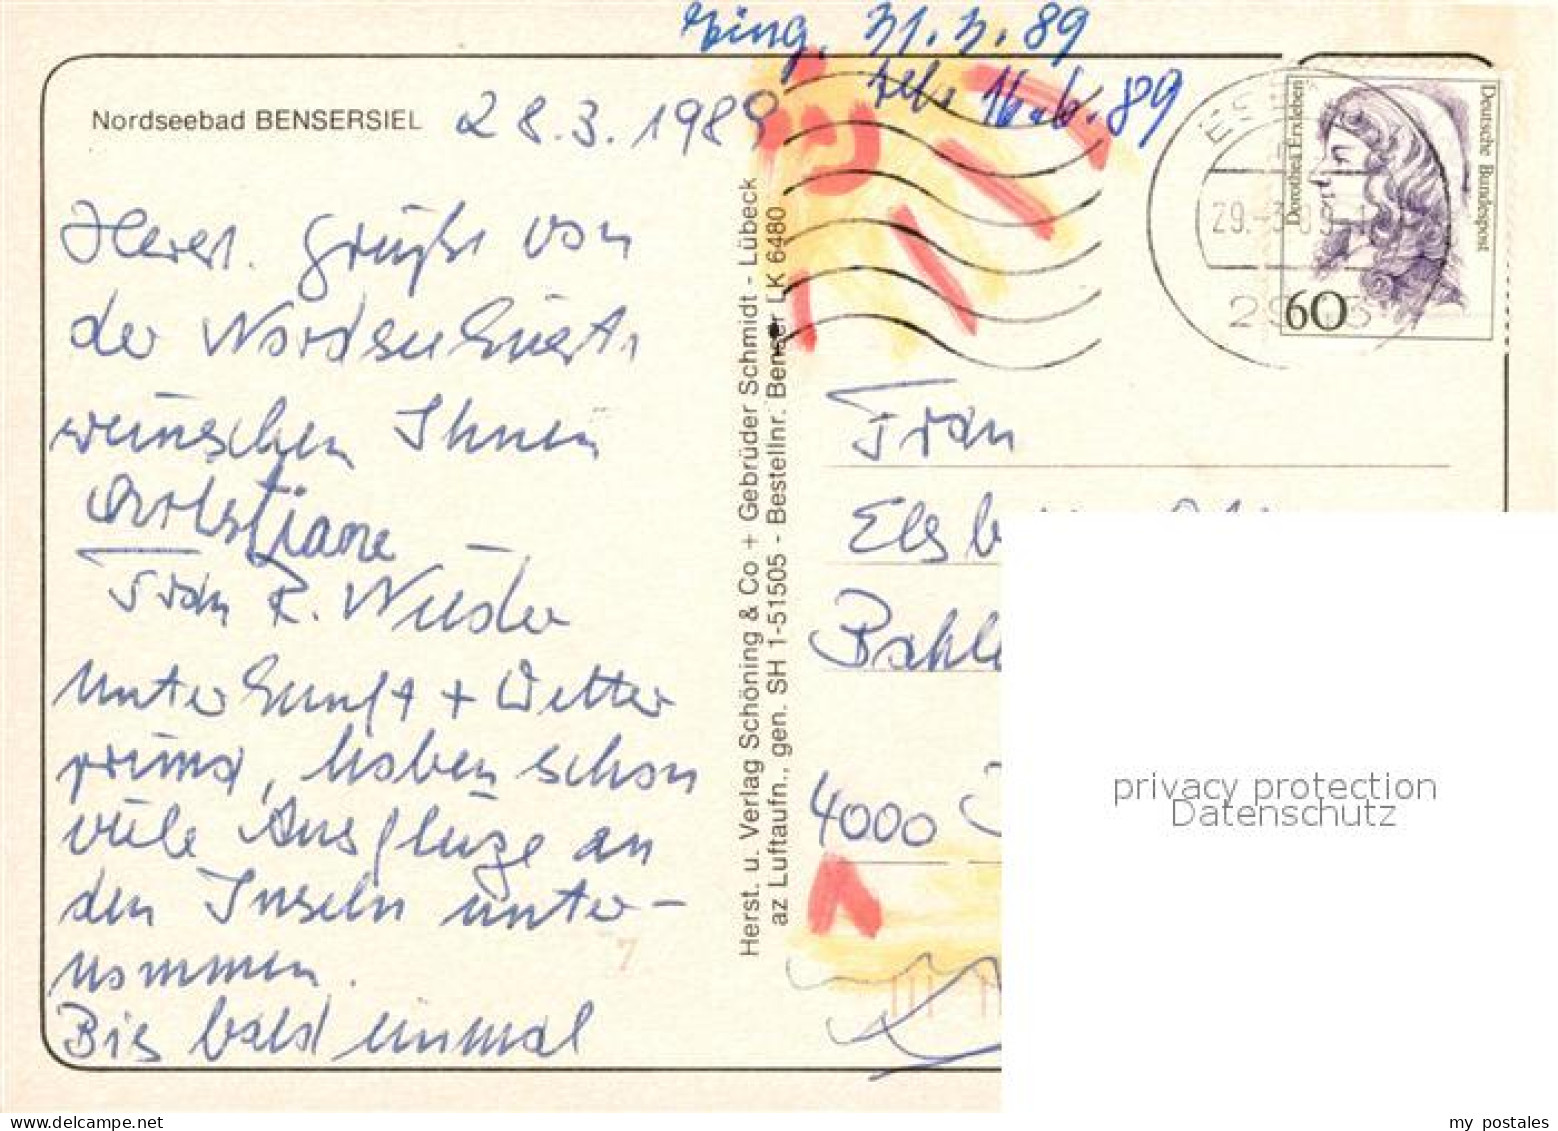 Eing. 31.3.89
tel. 16.6.89
Nordseebad BENSERSIEL
28.3.1989
Herzl. Grüße von
der Nordseeküste
wünschen Ihnen
Christiane
Frau R. Wieder
Unterkunft + Wetter
prima, haben schon
viele Ausflüge an
den Inseln unter-
nommen.
Bis bald einmal
7
Herst. u. Verlag Schöning & Co + Gebrüder Schmidt - Lübeck
az Luftaufn., gen. SH 1-51505 - Bestellnr. Benser LK 6480
29.-3.89
Dorothea Erxleben
Deutsche Bundespost
60
Frau
Elsb
4000
privacy protection
Datenschutz
www.delcampe.net
my_postales